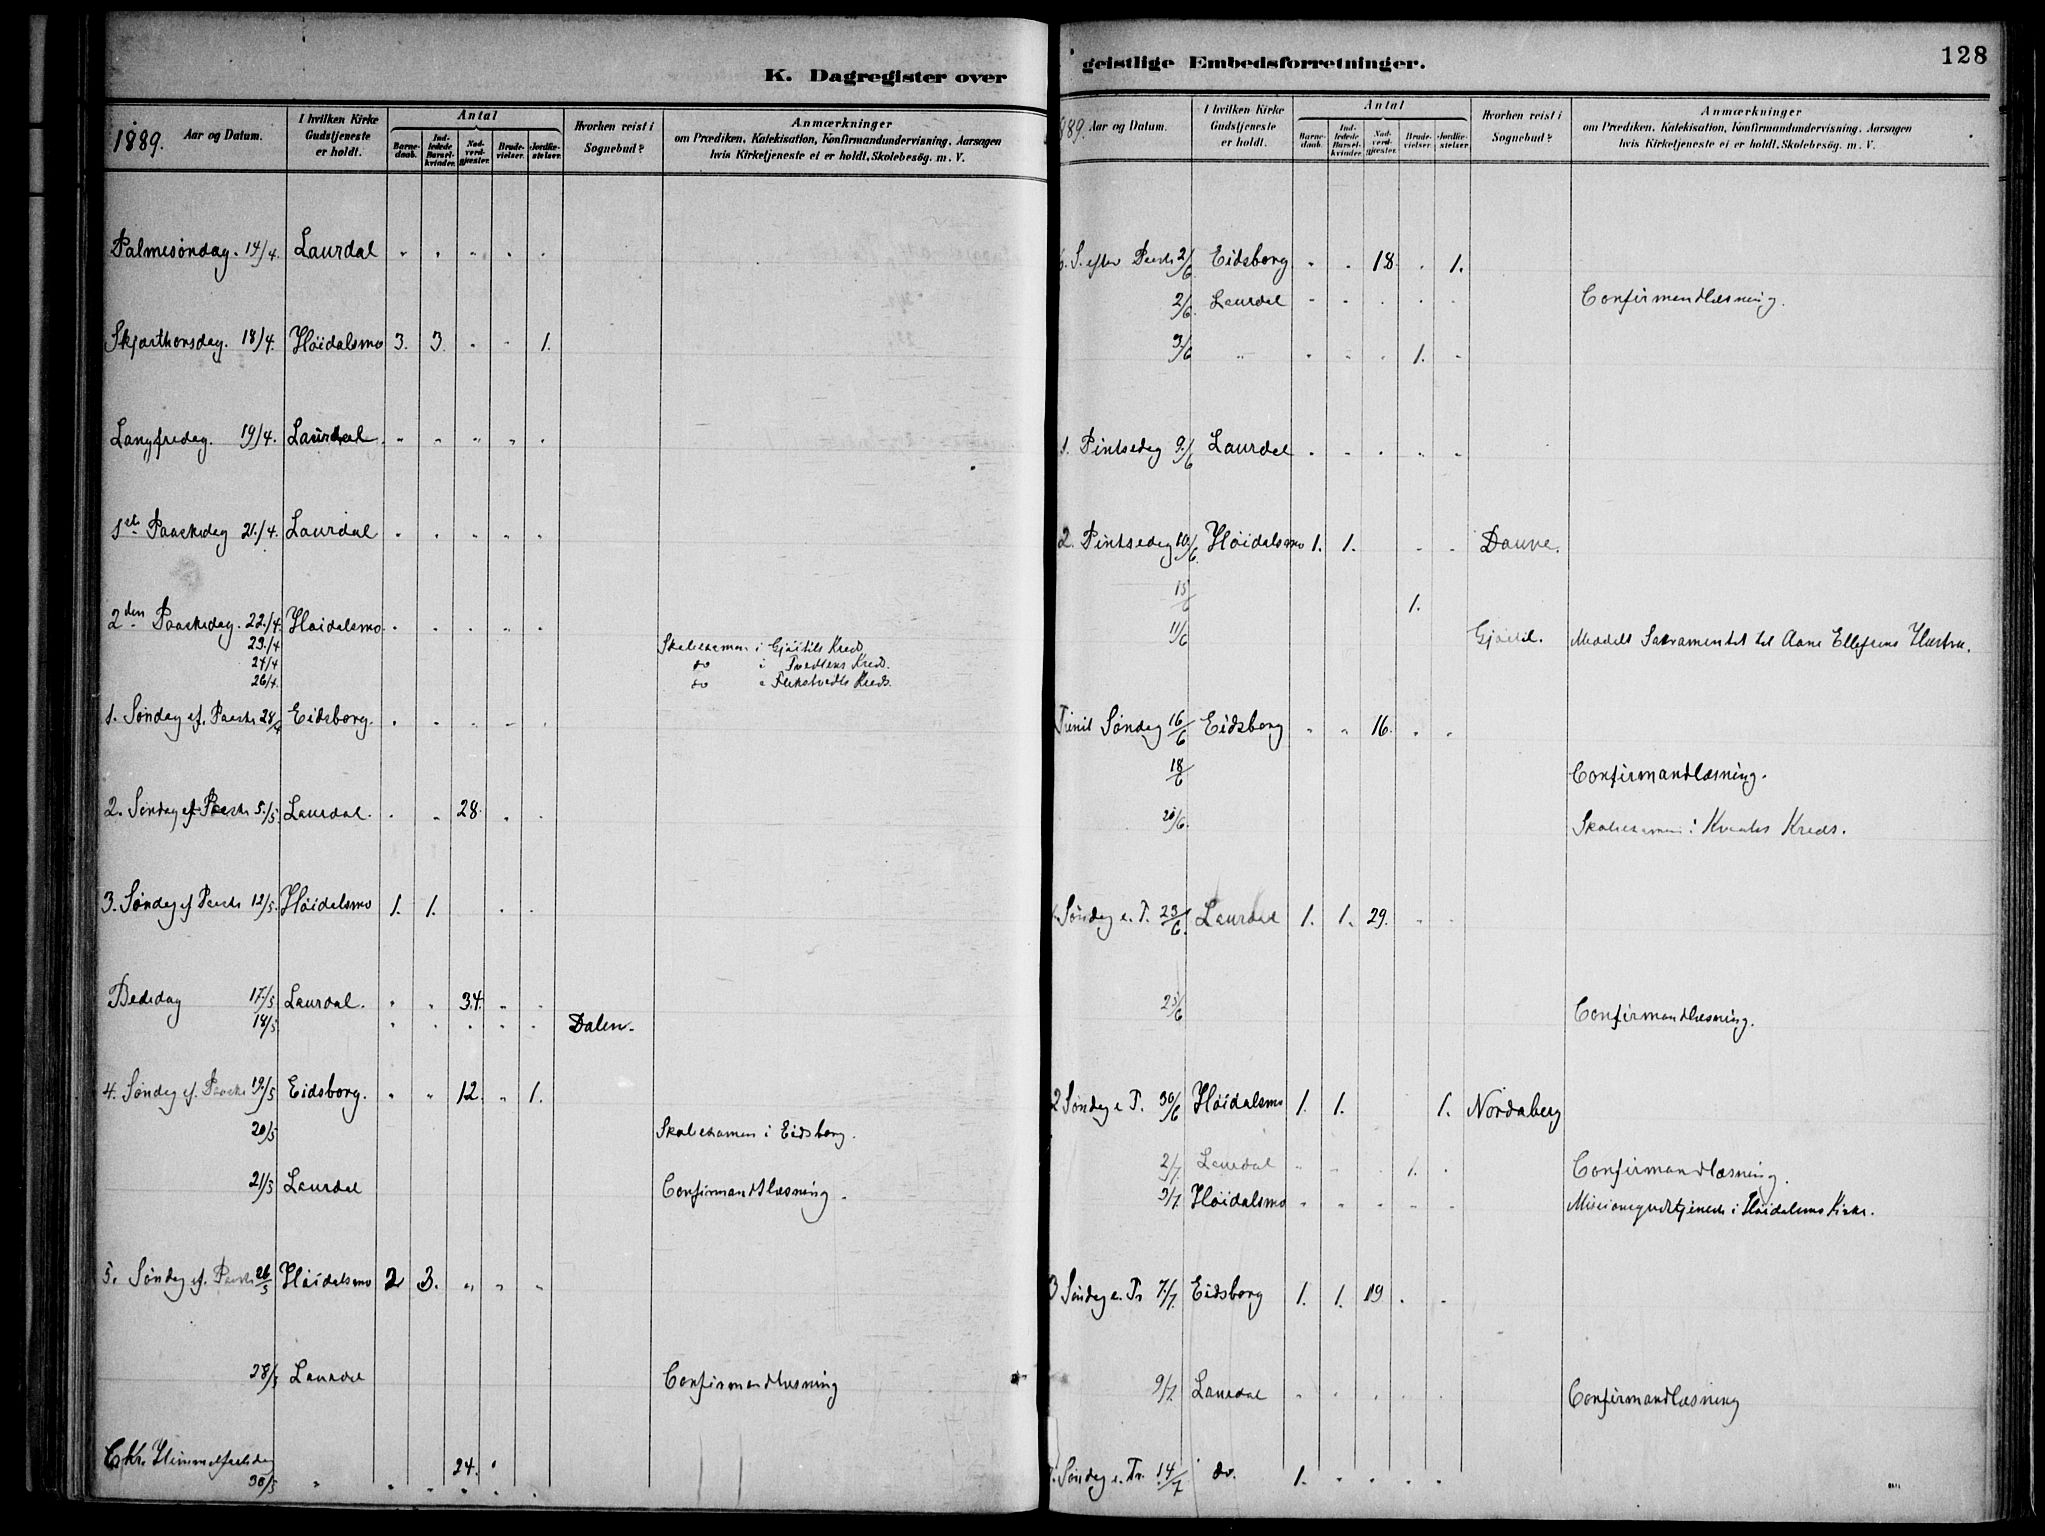 K. Dagregister over
1889. Aar og Datum.
I hvilken Kirke Gudstjeneste er holdt.
Antal
Barnedaab. Indledede Barselkvinder. Nadverdgjæster. Brudevielser. Jordfæstelser.
Hvorhen reist i Sognebud?
Anmærkninger
om Prædiken, Katekisation, Konfirmandundervisning, Aarsagen
hvis Kirketjeneste ei er holdt, Skolebesög. m. V.
Palmesöndag. 14/4. Laurdal " " " " "
Skjærthorsdag. 18/4. Höidalsmo 3. 3. " " 1.
Langfredag. 19/4. Laurdal. " " " " "
1ste Paaskedag 21/4. Laurdal " " " " "
2den Paaskedag. 22/4. Höidalsmo. " " " " "
23/4 Skoleexamen i Gjöitils Kreds
24/4 do i Tvedtens Kreds.
26/4. do i Kreds.
1. Söndag ef. Paaske 28/4 Eidsborg. " " " " "
2. Söndag ef. Paaske 5/5 Laurdal. " " 28. " "
3. Söndag ef Paaske 12/5. Höidalsmo 1. 1. " "
Bededag 17/5 Laurdal. " " 34. " "
18/5 " " " " " Dalen.
4. Söndag ef. Paaske 19/5 Eidsborg. " " 12. " 1.
20/5 Skoleexamen i Eidsborg.
21/5 Laurdal Confirmandtlæsning.
5. Söndag ef. Paaske 26/5 Höidalsmo 2 3. " " "
28/5 Laurdal Confirmandlæsning
Kr. Himmelfartsdag 24. "
30/5 " " " " " "
geistlige Embedsforretninger.
128
1889. Aar og Datum.
I hvilken Kirke Gudstjeneste er holdt.
Antal
Barnedaab. Indledede Barselkvinder. Nadverdgjæster. Brudevielser. Jordfæstelser.
Hvorhen reist i Sognebud?
Anmærkninger
om Prædiken, Katekisation, Konfirmandundervisning, Aarsagen
hvis Kirketjeneste ei er holdt, Skolebesög. m. V.
6. S. efter Paaske 2/6 Eidsborg " " 18. " 1.
2/6. Laurdal " " " " " Confirmandlæsning.
3/6 " " " " 1. "
1. Pintsedag 9/6 Laurdal " " " " "
2. Pintsedag 10/6. Höidalsmo 1. 1. " " Daune.
15/6 1.
11/6 Gjöitil. Meddelt Sacramentet til Aane Ellefsens Hustru.
Trinit Söndag 16/6 Eidsborg " " 16. " "
18/6 Confirmandlæsning.
20/6. Skoleexamen i Kreds.
Söndag e. T. 23/6. Laurdal 1. 1. 29. " "
25/6 Confirmandlæsning.
2 Söndag e T. 30/6 Höidalsmo 1. 1. 1. Nordaberg
2/7. Laurdal " " " 1. " Confirmandlæsning.
3/7. Höidalsmo " " " " " Missionsgudstjeneste i Höidalsmo Kirke.
3 Söndag e. Tr 7/7. Eidsborg 1. 1. 19 " "
9/7. Laurdal " " " " " Confirmandlæsning
Söndag e. Tr. 14/7 do. 1. " " " "